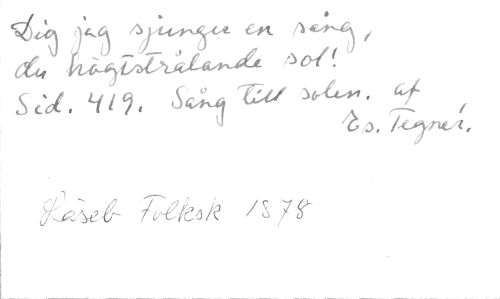 Dig jag sjunger en sång,
du högtstrålande sol!
Sid. 419. Sång till solen. af
Es. Tegnér.
Läseb Folksk 1878